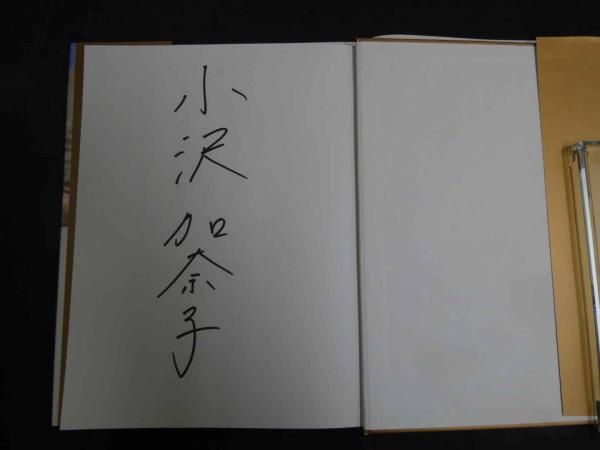 小沢加奈子